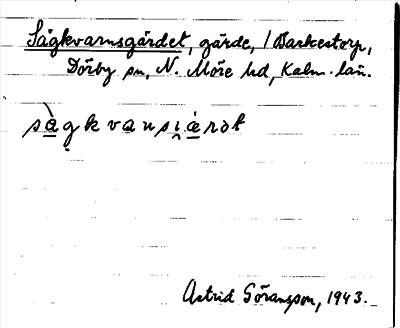 Sågkvarnsgärdet, gärde, / Barkestorp,
Dörby sn, N. Möre hd, Kalm. län.
sàgkvansi̯árdt
Astrid Göransson, 1943.